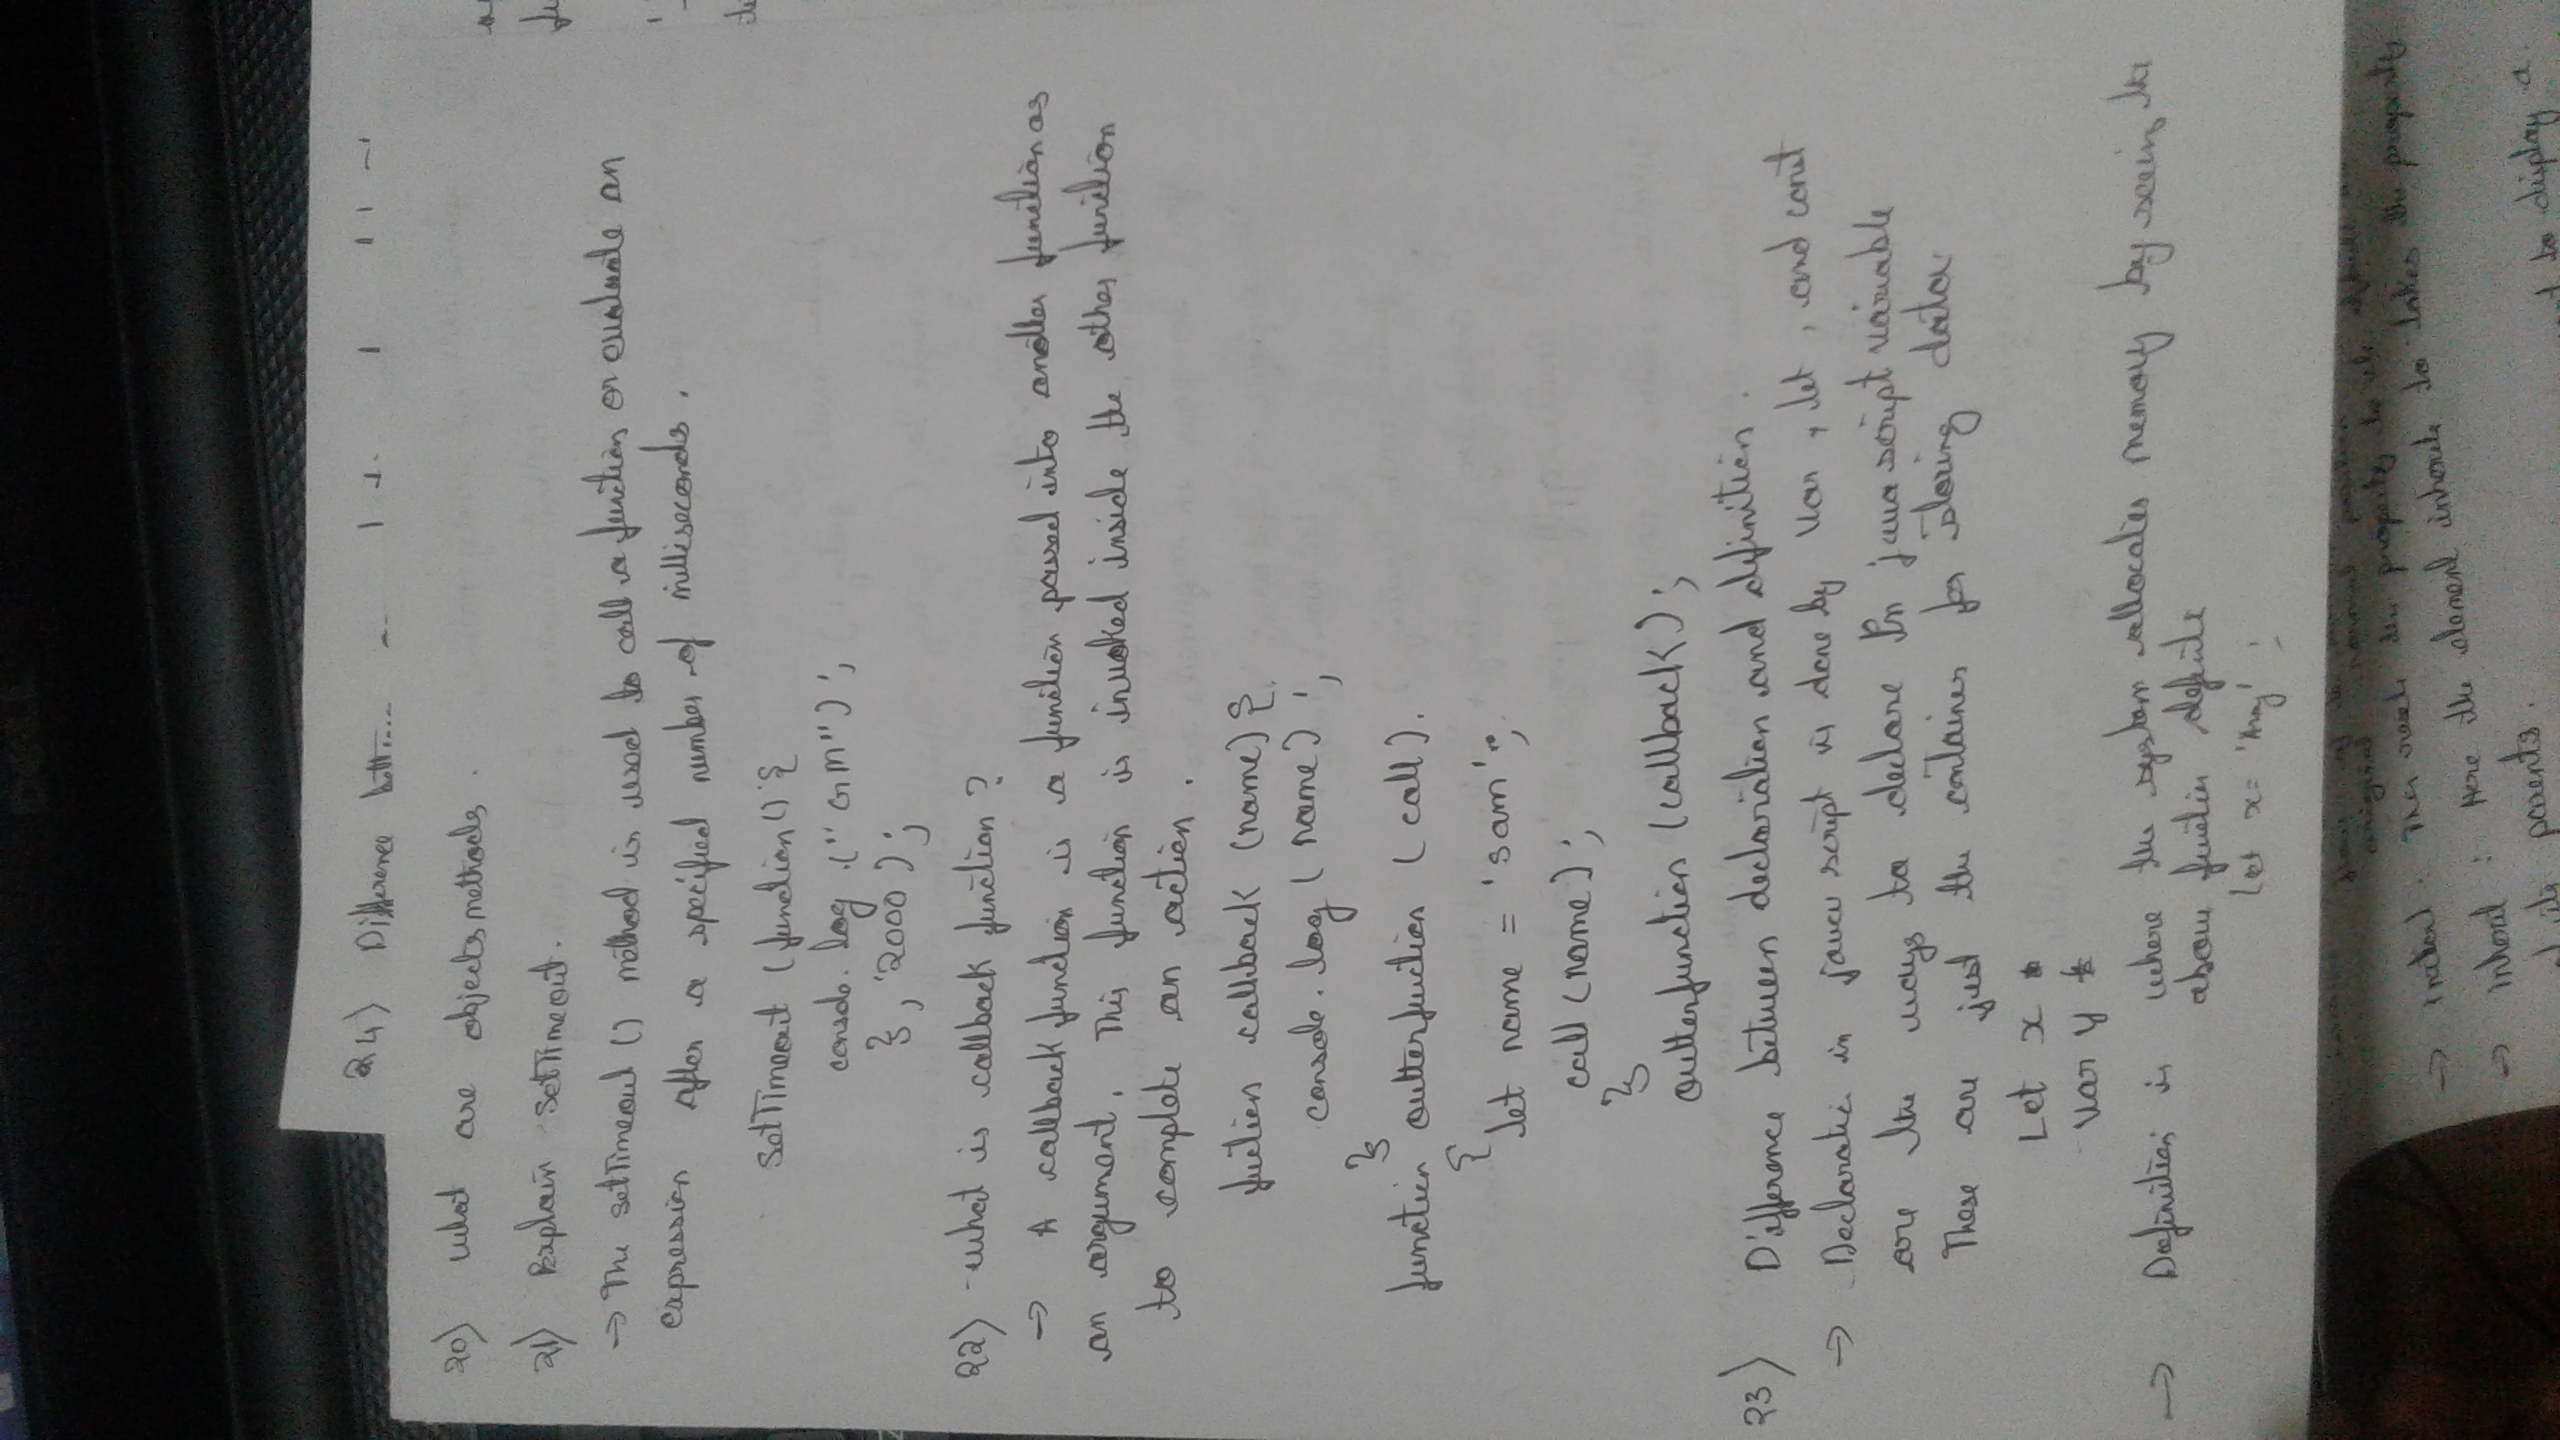 DELL
24) Difference
20) what are objects methods.
21) Explain SetTimeout.
→ The setTimeout () method is used to call a function or evaluate an
expression after a specified number of milliseconds.
SetTimeout (function () {
console. log ("GM") ;
} , 2000 ) ;
22) what is callback function ?
→ A callback function is a function passed into another function as
an argument. This function is invoked inside the other function
to complete an action.
fuction callback (name) {
console. log ( name ) ;
}
function outterfuction ( call ).
{
let name = 'sam' ;
call (name) ;
}
outterfunction (callback) ;
23) Difference between declaration and definition.
→ Declaratic in java script is done by var , let , and const
are the ways to declare In java script variable
These are just the container for storing data
Let x
Var y
→ Definition is where the system allocates memory by seeing the
above function definite
let x = 'Array' ;
original normal position
→ initial : This resets the property to its default
→ inherit : Here the element inherits to takes the property
of its parents.
to display a